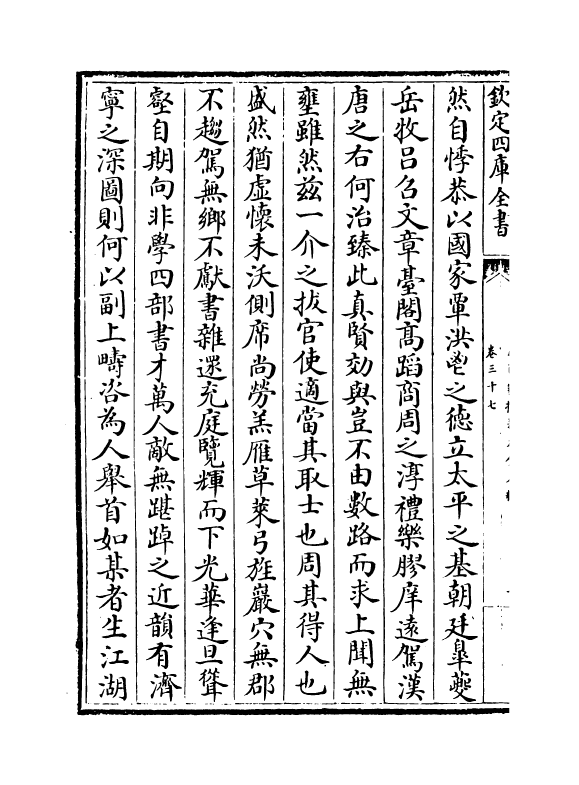 欽定四庫全書
卷三十七
然自悸恭以國家覃洪鬯之徳立太平之基朝廷臯夔
岳牧吕召文章臺閣髙蹈商周之淳禮樂膠庠逺駕漢
唐之右何治臻此真賢効與豈不由數路而求上聞無
壅雖然兹一介之拔官使適當其取士也周其得人也
盛然猶虚懐未沃側席尚勞羔雁草萊弓旌巖穴無郡
不趨駕無鄉不獻書雜遝充庭覽輝而下光華逢旦聳
壑自期向非學四部書才萬人敵無踸踔之近韻有濟
寧之深圖則何以副上疇咨為人舉首如某者生江湖